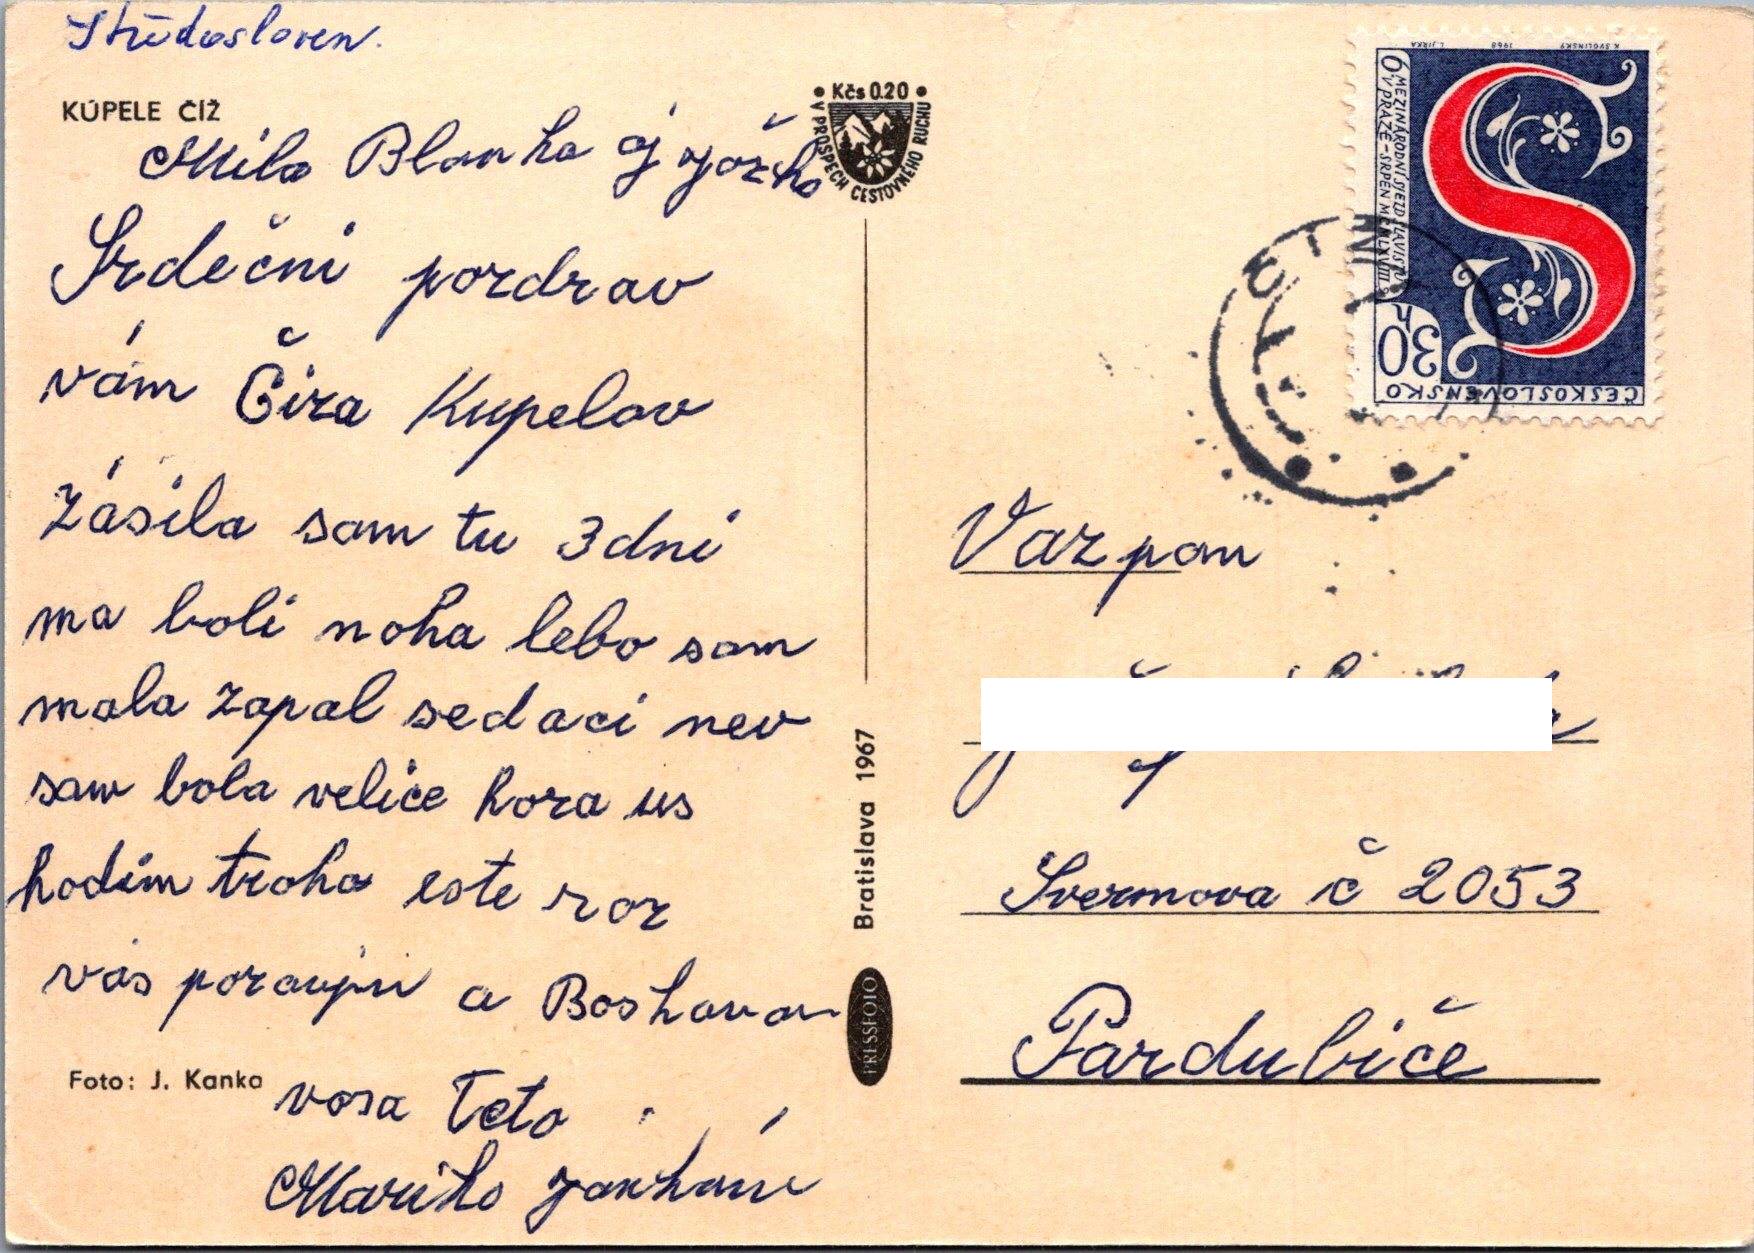 Středosloven.
KÚPELE ČÍŽ
Kčs 0.20
V PROSPECH CESTOVNÉHO RUCHU
Mila Blanka aj Jožko
Srdečni pozdrav
vám Čiza Kupelov
Zásila sam tu 3 dni
ma boli noha lebo sam
mala zapal sedaci nev
sam bola velice hora us
hodim troha este raz
vás pozaujni a Boskavam
Foto: J. Kanka
vasa Teta
Marika
Bratislava 1967
PRESSFOTO
K. SVOLINSKÝ 1968 L. JIRKA
6. MEZINÁRODNÍ SJEZD SLAVISTŮ
V PRAZE – SRPEN MCMLXVIII
30 h
ČESKOSLOVENSKO
Vaz pan
Svermova č 2053
Pardubiče